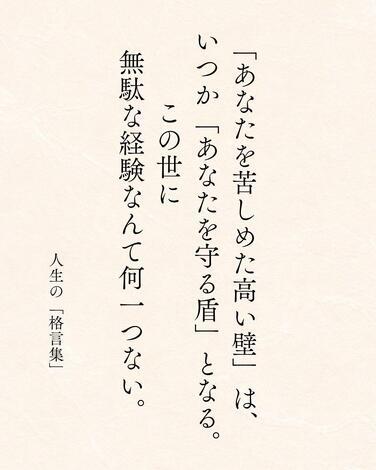 「あなたを苦しめた高い壁」は、
いつか「あなたを守る盾」となる。
この世に
無駄な経験なんて何一つない。
人生の「格言集」